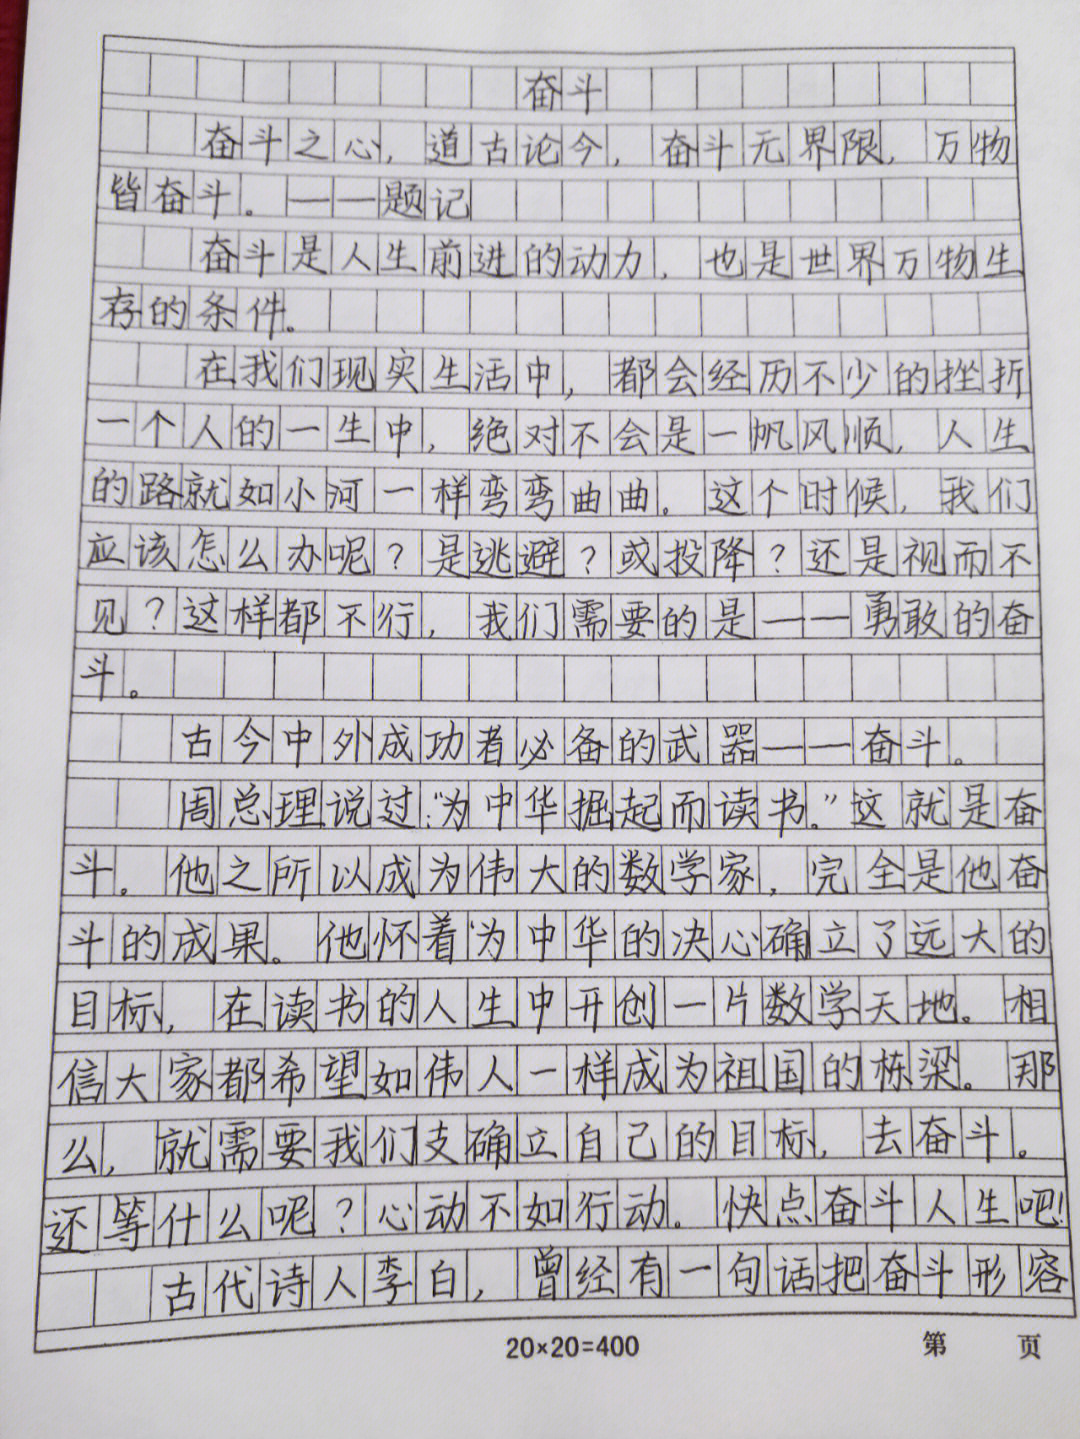 奋斗
奋斗之心，道古论今，奋斗无界限，万物
皆奋斗。——题记
奋斗是人生前进的动力，也是世界万物生
存的条件。
在我们现实生活中，都会经历不少的挫折
一个人的一生中，绝对不会是一帆风顺，人生
的路就如小河一样弯弯曲曲。这个时候，我们
应该怎么办呢？是逃避？或投降？还是视而不
见？这样都不行，我们需要的是——勇敢的奋
斗。
古今中外成功者必备的武器——奋斗。
周总理说过：“为中华掘起而读书。”这就是奋
斗。他之所以成为伟大的数学家，完全是他奋
斗的成果。他怀着‘为中华的决心确立了远大的
目标，在读书的人生中开创一片数学天地。相
信大家都希望如伟人一样成为祖国的栋梁。那
么，就需要我们支确立自己的目标，去奋斗。
还等什么呢？心动不如行动。快点奋斗人生吧！
古代诗人李白，曾经有一句话把奋斗形容
20×20=400
第 页